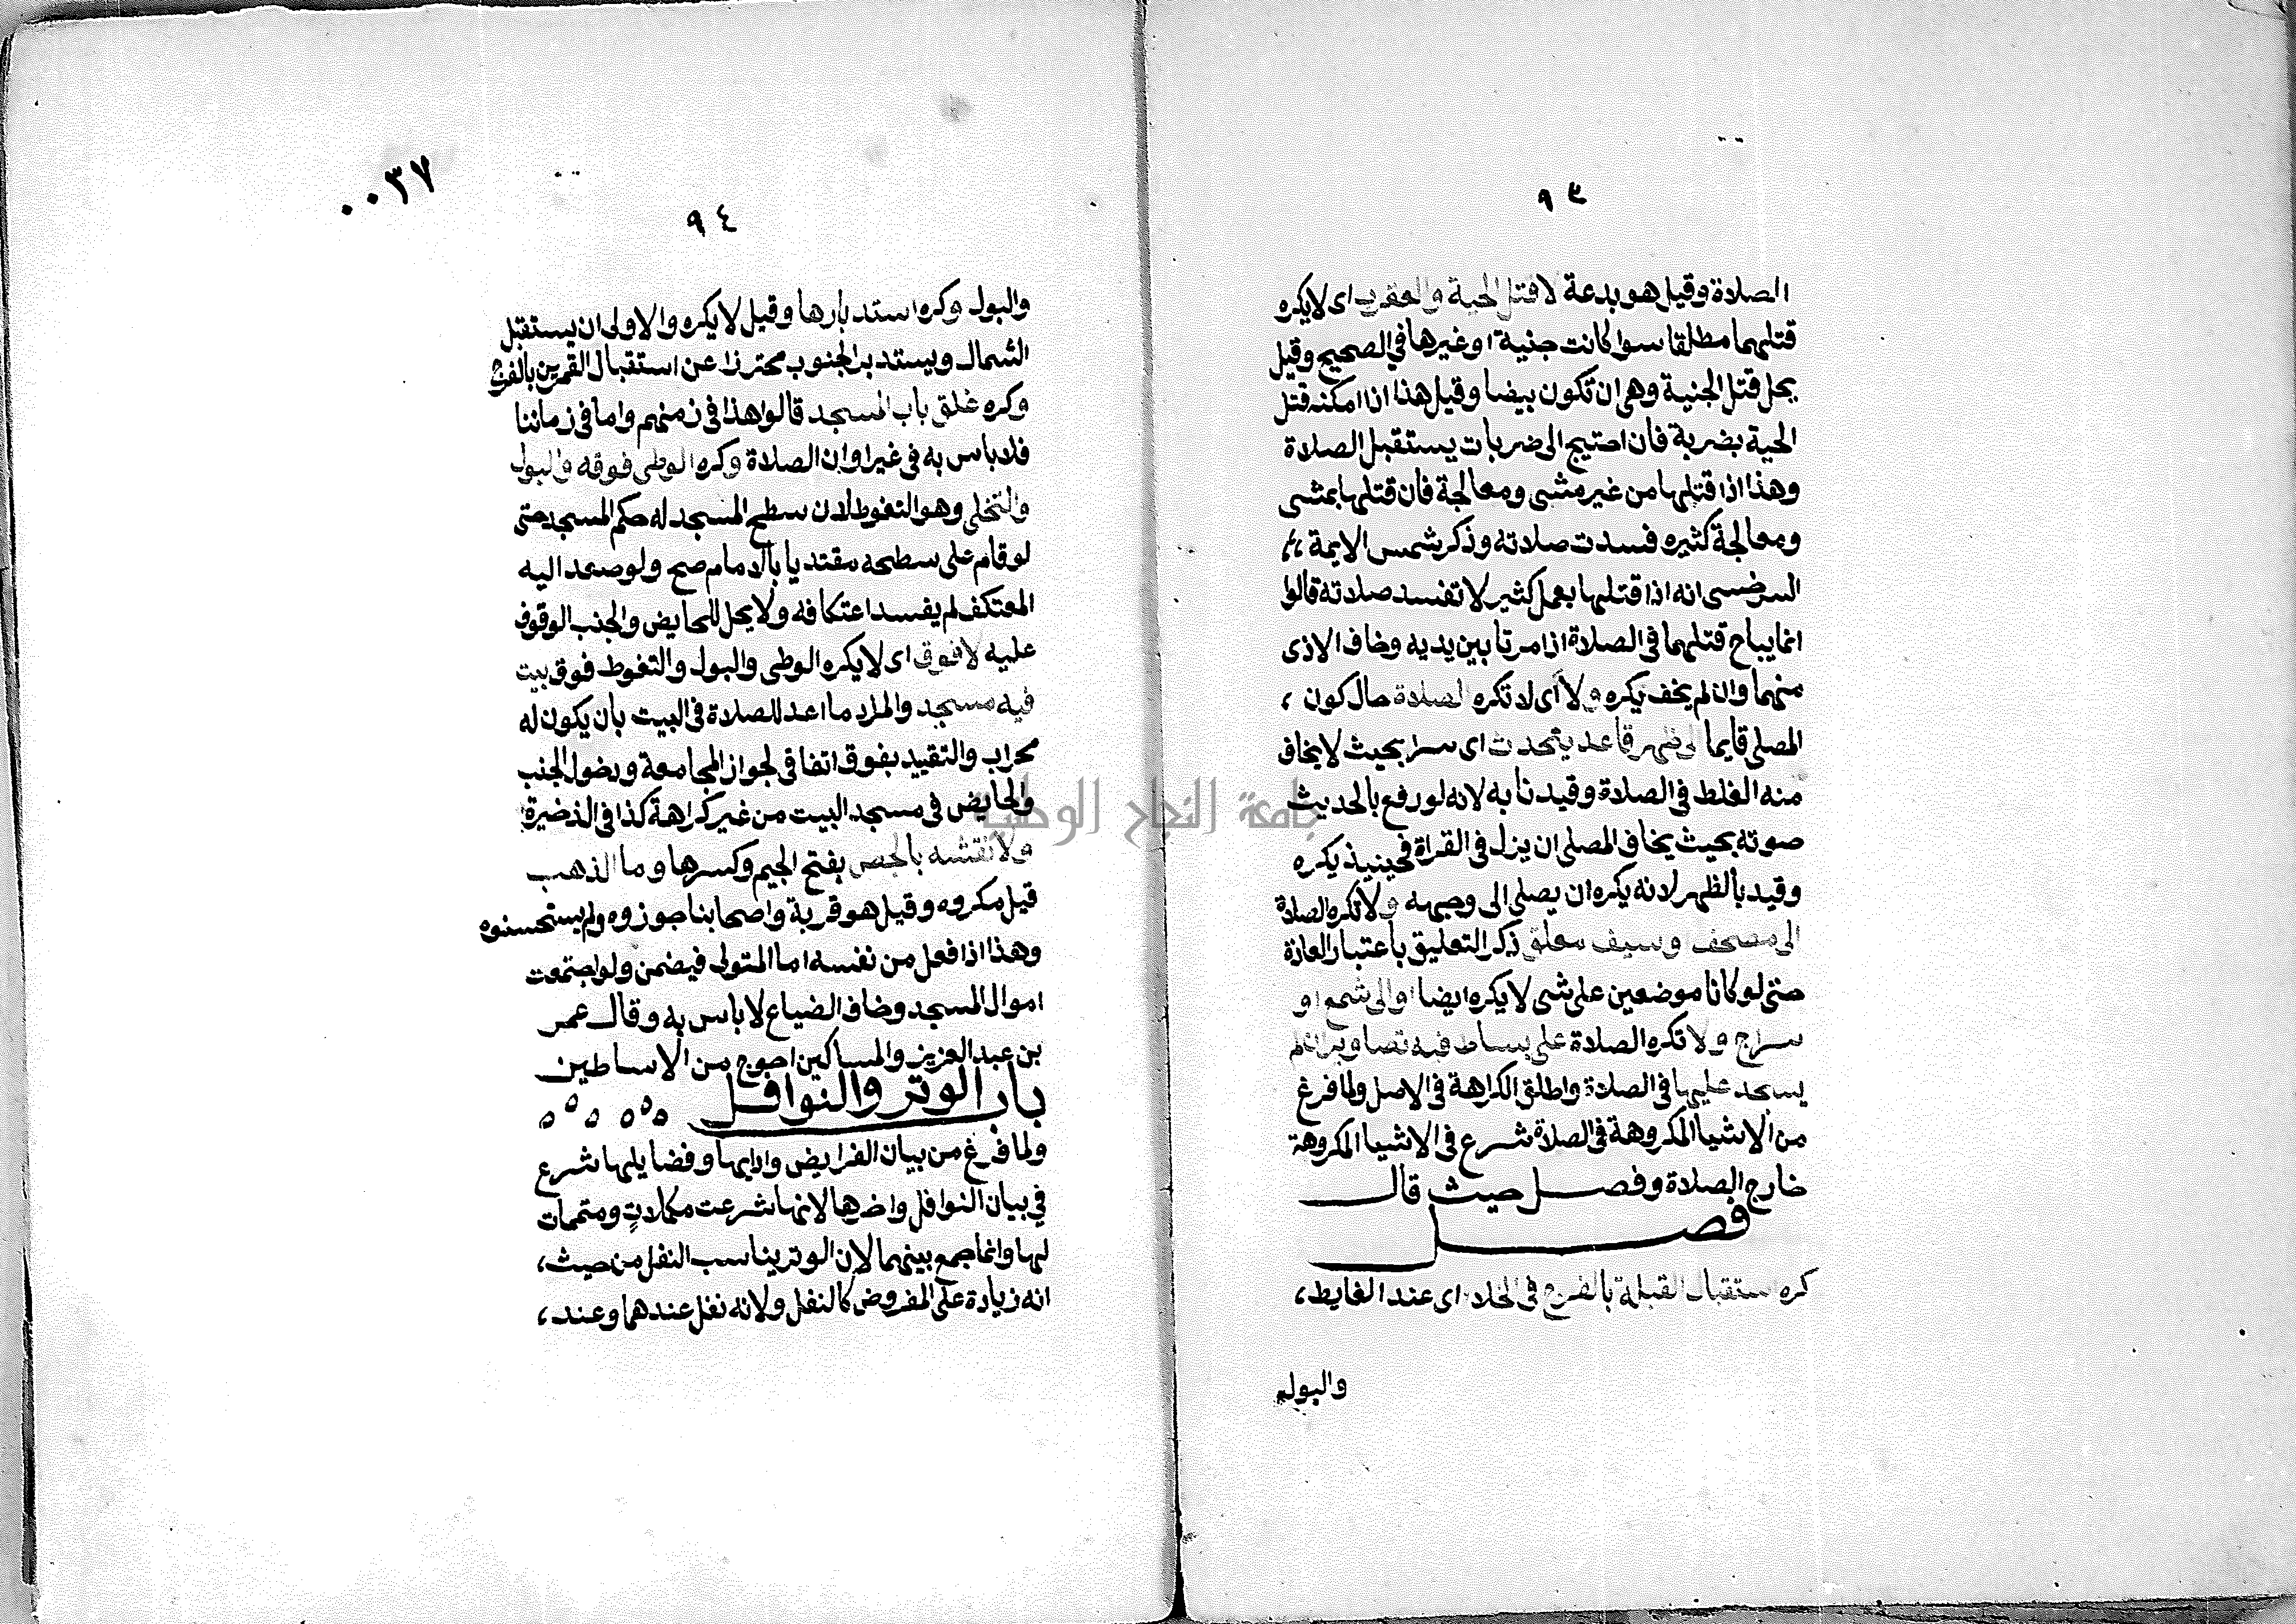 ٩٣
الصلاة وقيل هو بدعة لا قتل الحية والعقرب اى لا يكره
قتلهما مطلقا سوا كانت جنية او غيرها في الصحيح وقيل
يحل قتل الجنية وهى ان تكون بيضا وقيل هذا اذا امكنه قتل
الحية بضربة فان احتيج الى ضربات يستقبل الصلاة
وهذا اذا قتلها من غير مشى ومعالجة فان قتلها بمشى
ومعالجة كثيره فسدت صلاته وذكر شمس الايمة
السرخسى انه اذا قتلها بعمل كثير لا تفسد صلاته قالوا
انما يباح قتلهما فى الصلاة اذا مرتا بين يديه وخاف الاذى
منهما وان لم يخف يكره ولا اى لا تكره الصلاة حال كون ،
المصلى قايما الى ظهر قاعد يتحدث اى سرا بحيث لا يخاف
منه الغلط فى الصلاة وقيدنا به لانه لو رفع بالحديث
صوته بحيث يخاف المصلى ان يزل فى القراة فحينيذ يكره
وقيد بالظهر لانه يكره ان يصلى الى وجهه ولا تكره الصلاة
الى مصحف وسيف معلق ذكر التعليق باعتبار العادة
حتى لو كانا موضعين على شى لا يكره ايضا او الى شمع او
سراج ولا تكره الصلاة على بساط فيه تصاوير ان لم
يسجد عليها فى الصلاة واطلق الكراهة فى الاصل ولما فرغ
من الاشيا المكروهة فى الصلاة شرع فى الاشيا المكروهة
خارج الصلاة وفصل حيث قال
فصل
كره استقبال القبلة بالفرج فى الخلا اى عند الغايط ،
والبول
٠٠٣٧
٩٤
والبول وكره استدبارها وقيل لا يكره والاولى ان يستقبل
الشمال ويستدبر الجنوب محترزا عن استقبال القمرين بالفرج
وكره غلق باب المسجد قالوا هذا فى زمنهم واما فى زماننا
فلا باس به فى غير اوان الصلاة وكره الوطى فوقه والبول
والتخلى وهو التغوط لان سطح المسجد له حكم المسجد حتى
لو قام على سطحه مقتديا بالامام صح ولو صعد اليه
المعتكف لم يفسد اعتكافه ولا يحل للحايض والجنب الوقوف
عليه لا فوق اى لا يكره الوطى والبول والتغوط فوق بيت
فيه مسجد والمراد ما اعد للصلاة فى البيت بان يكون له
محراب والتقييد بفوق اتفاقى لجواز المجامعة ودخول الجنب
والحايض فى مسجد البيت من غير كراهة كذا فى الذخيرة
ولا نقشه بالجص بفتح الجيم وكسرها وما الذهب
قيل مكروه وقيل هو قربة واصحابنا جوزوه ولم يستحسنوه
وهذا اذا فعل من نفسه اما المتولى فيضمن ولو اجتمعت
اموال المسجد وخاف الضياع لا باس به وقال عمر
بن عبد العزيز والمساكين احوج من الاساطين
باب الوتر والنوافل
ولما فرغ من بيان الفرايض وادابها وفضايلها شرع
في بيان النوافل واخرها لانها شرعت مكملات ومتممات
لها وانما جمع بينهما لان الوتر يناسب النفل من حيث ،
انه زيادة على المفروض كالنفل ولانه نفل عندهما وعند ،
جامعة النجاح الوطنية